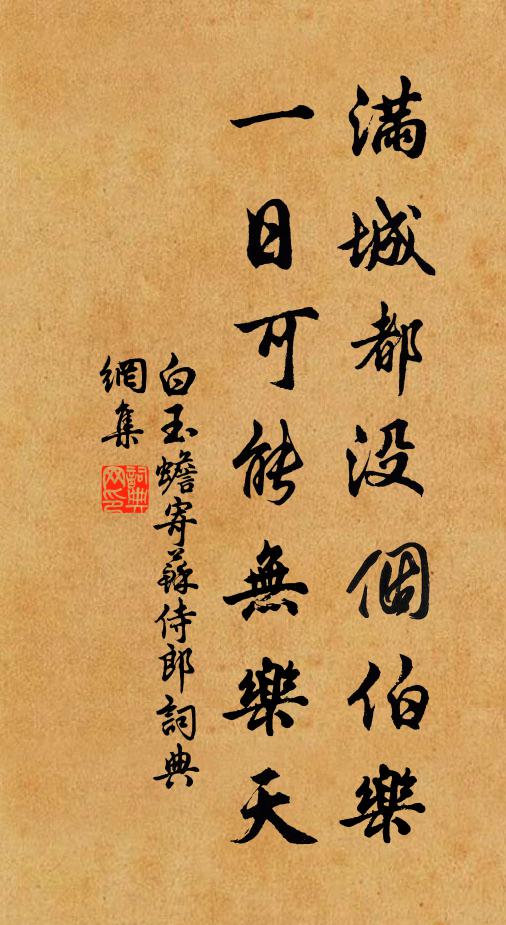 滿城都没個伯樂
一日可能無樂天
白玉蟾寄蘇侍郎詞典
網集
詞典
网印